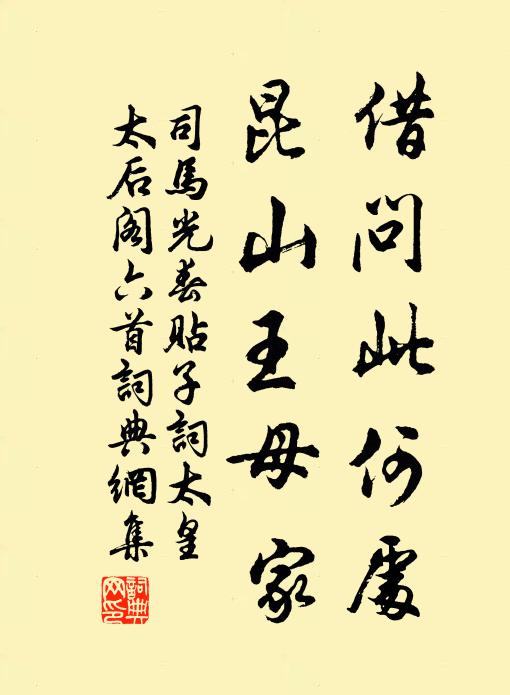 借问此何處
昆山王母家
司馬光春贴子詞太皇
太后阁六首詞典網集
詞典